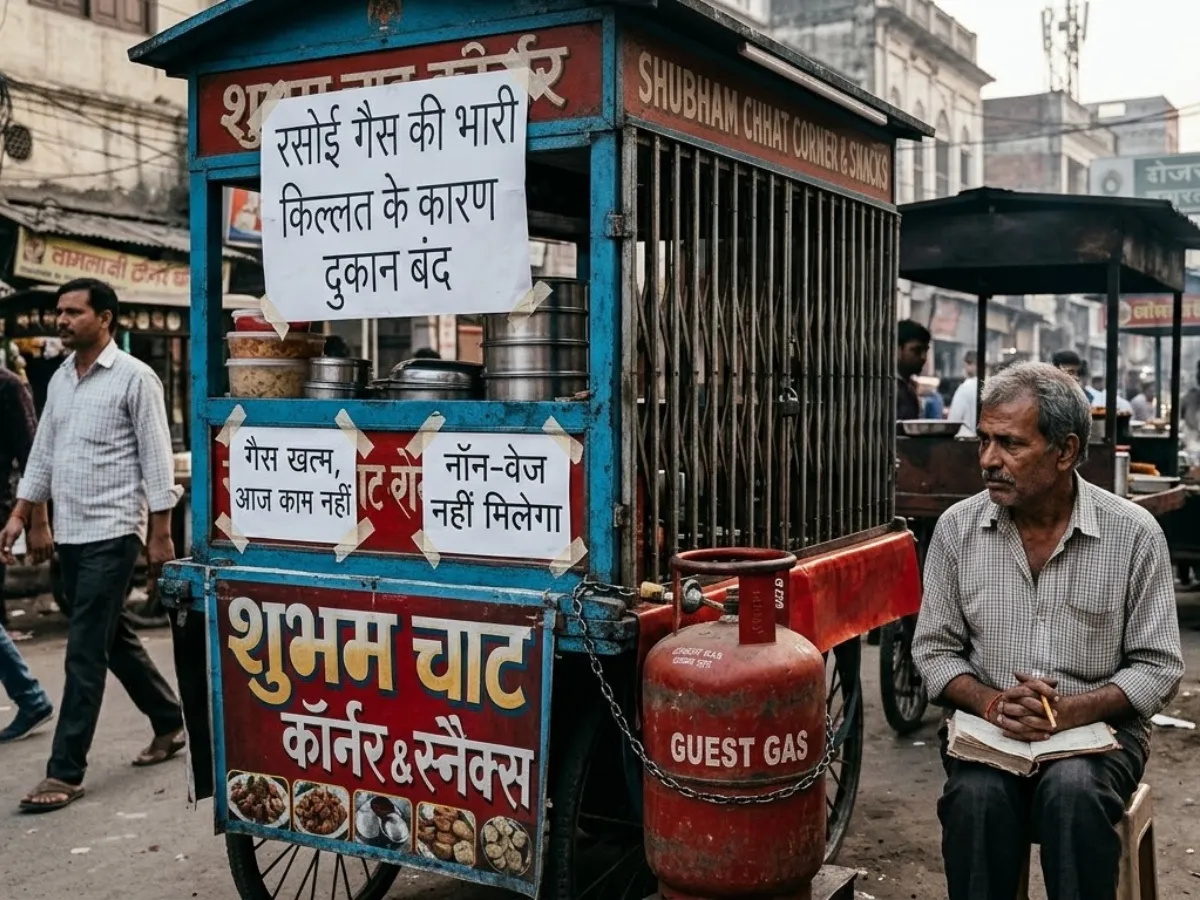 रसोई गैस की भारी
किल्लत के कारण
दुकान बंद
SHUBHAM CHHAT CORNER & SNACKS
गैस खत्म,
आज काम नहीं
नॉन-वेज
नहीं मिलेगा
शुभम चाट
कॉर्नर & स्नैक्स
GUEST GAS